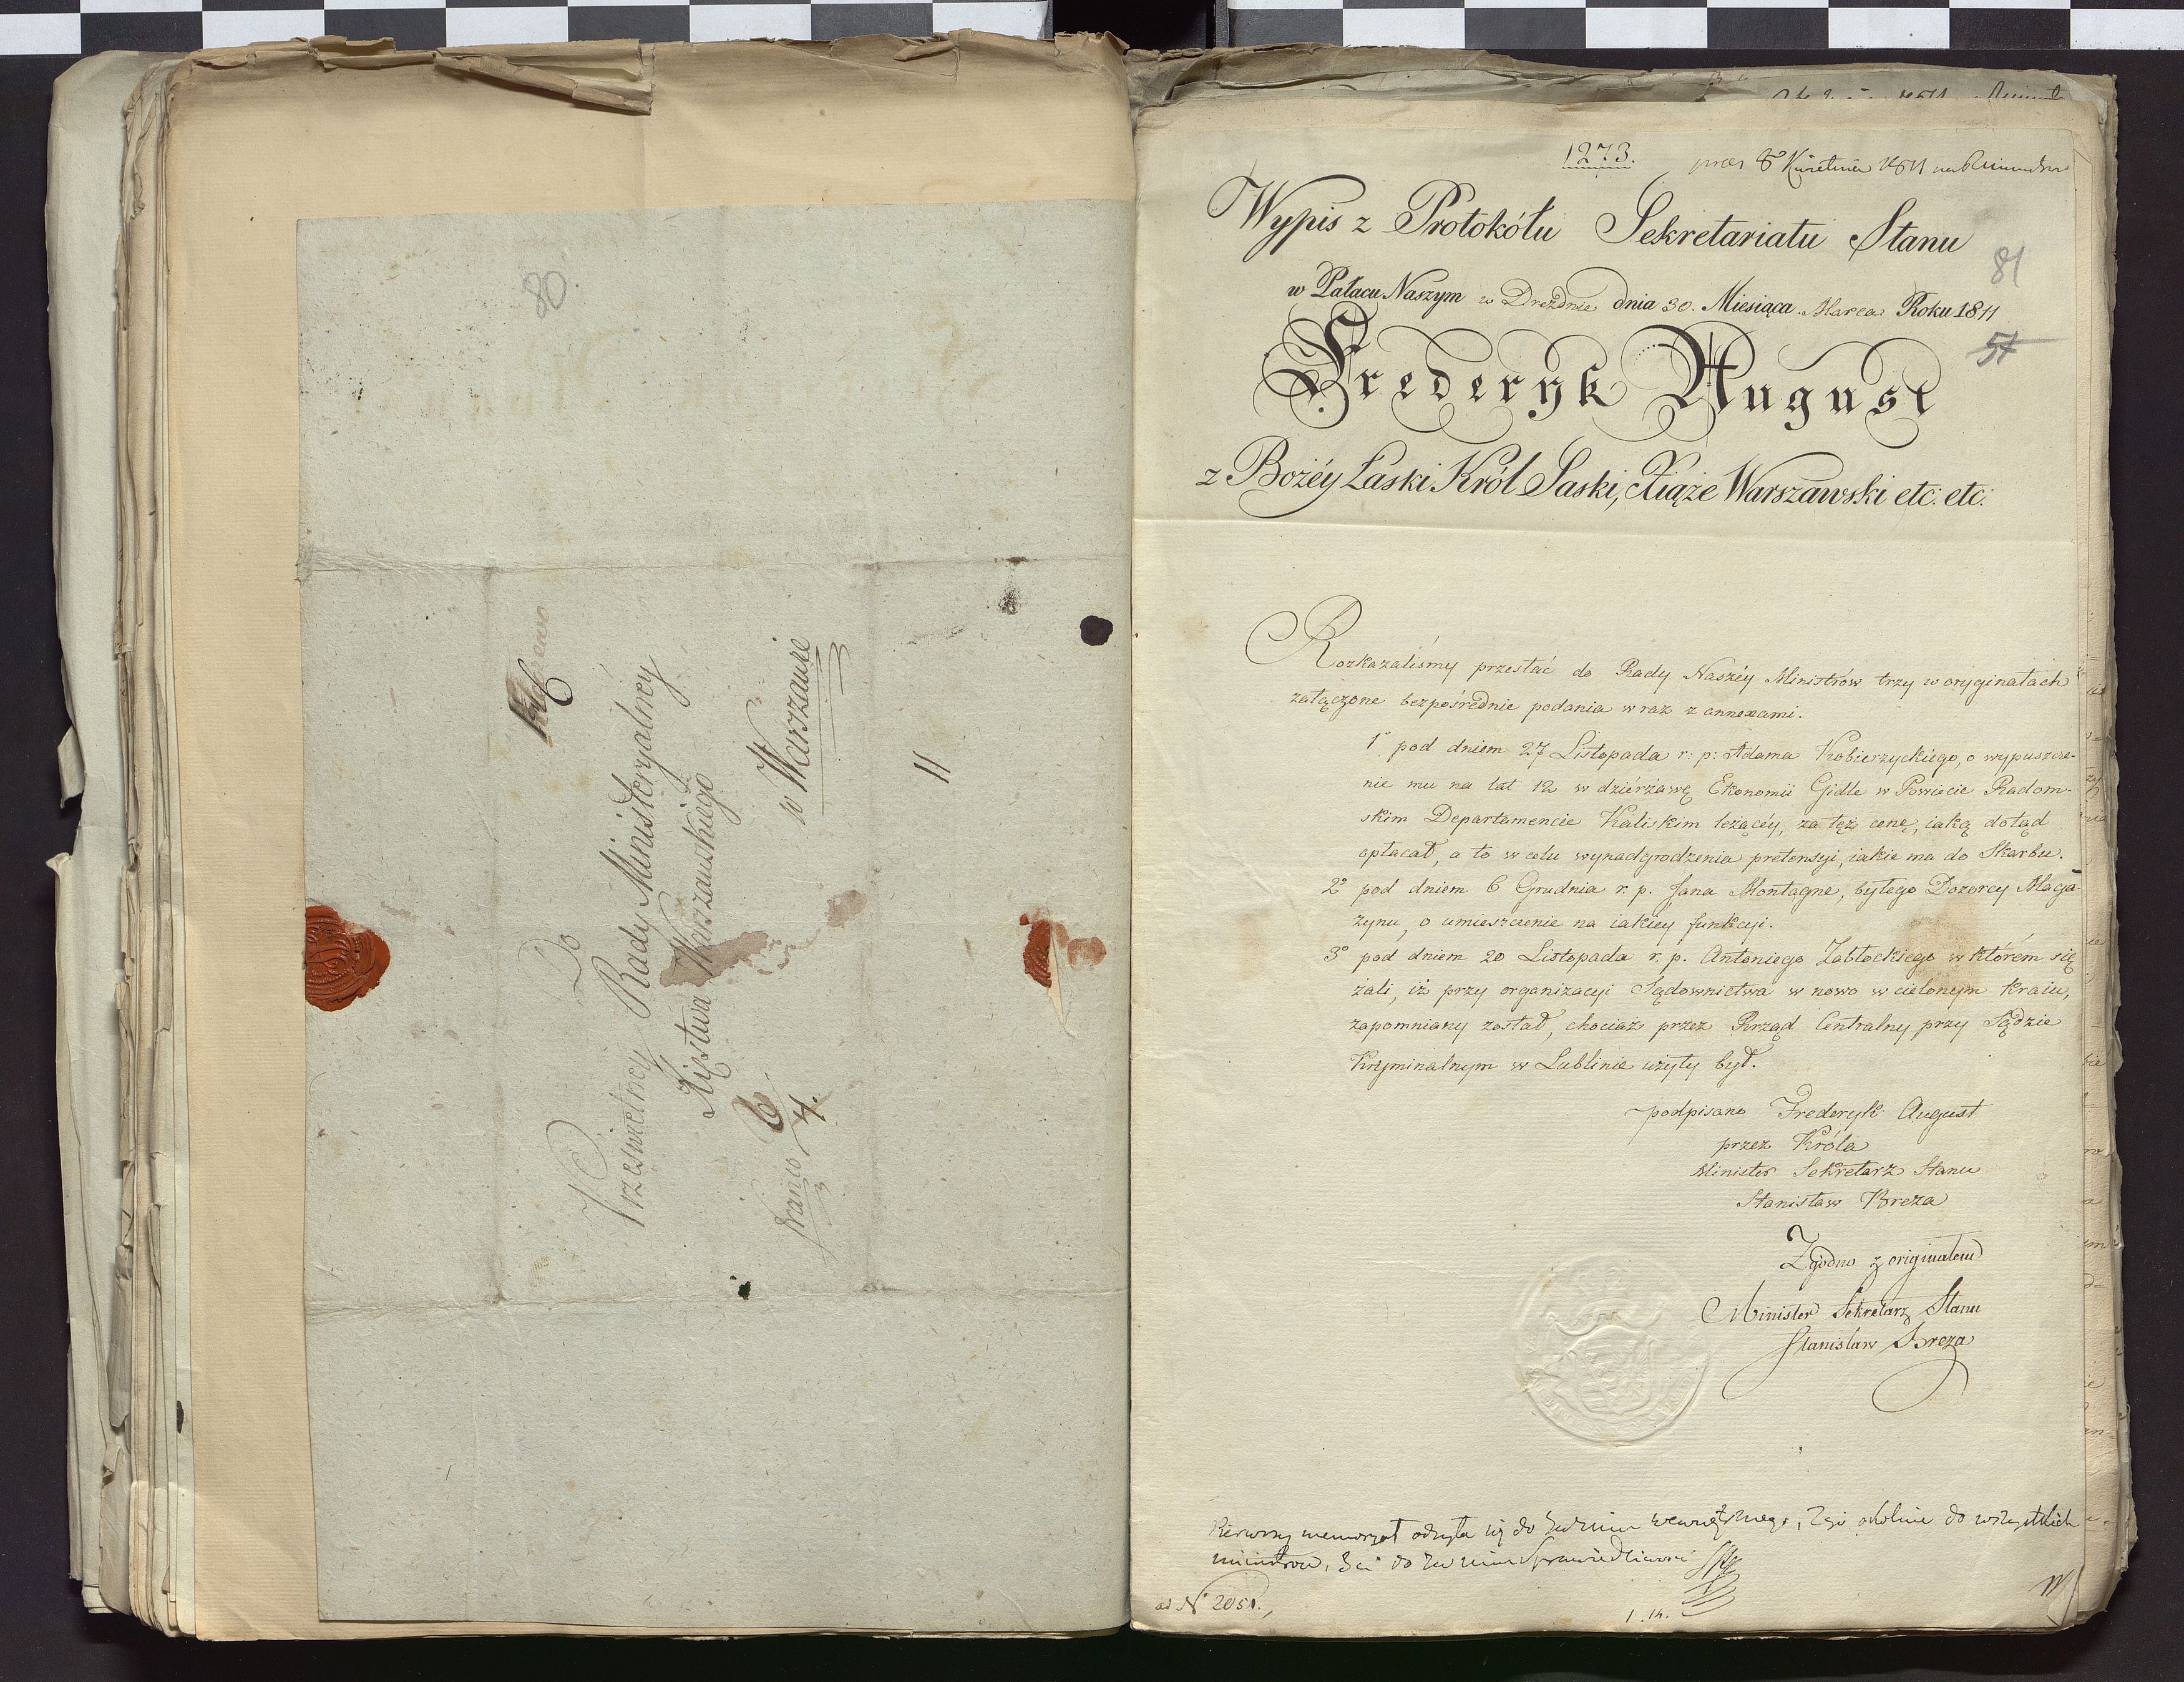 80.
Do
Prześwietney Rady Ministeryalney
Xięstwa Warszawskiego
w Warszawie
franco
6
4.
11
1273.
8 Kwietnia 1811
Wypis z Protokółu Sekretariatu Stanu
81
w Pałacu Naszym w Dreźdnie dnia 30. Miesiąca Marca Roku 1811
54
Frederyk August
z Bożéy Łaski Król Saski, Xiąże Warszawski etc: etc:
Rozkazaliśmy przesłać do Rady Naszéy Ministrów trzy w oryginałach
załączone bezpośrednie podania wraz z annexami.
1° pod dniem 27 Listopada r: p: Adama Kobierzyckiego, o wypuszcze-
nie mu na lat 12 w dzierżawę Ekonomii Gidle w Powiecie Radom-
skim Departamencie Kaliskim leżącéy, za też cenę, iaką dotąd
opłacał, a to w celu wynadgrodzenia pretensyi, iakie ma do Skarbu.
2° pod dniem 6 Grudnia r. p. Jana Montagne, byłego Dozorcy Maga-
zynu, o umieszczenie na iakiey funkcyi.
3° pod dniem 20 Listopada r. p. Antoniego Zabłockiego w którém się
żali, iż przy organizacyi Sądownictwa w nowo wcielonym kraiu,
zapomniany został, chociaż przez Rząd Centralny przy Sądzie
Kryminalnym w Lublinie użyty był.
podpisano Frederyk August
przez Króla
Minister Sekretarz Stanu
Stanisław Breza
Zgodno z originałem
Minister Sekretarz Stanu
Stanisław Breza
Pierwszy memoryał odsyła się do wewnętrznego, 2gi do wszystkich
ministrow, 3ci do Sprawiedliwosci
ad N° 2051.